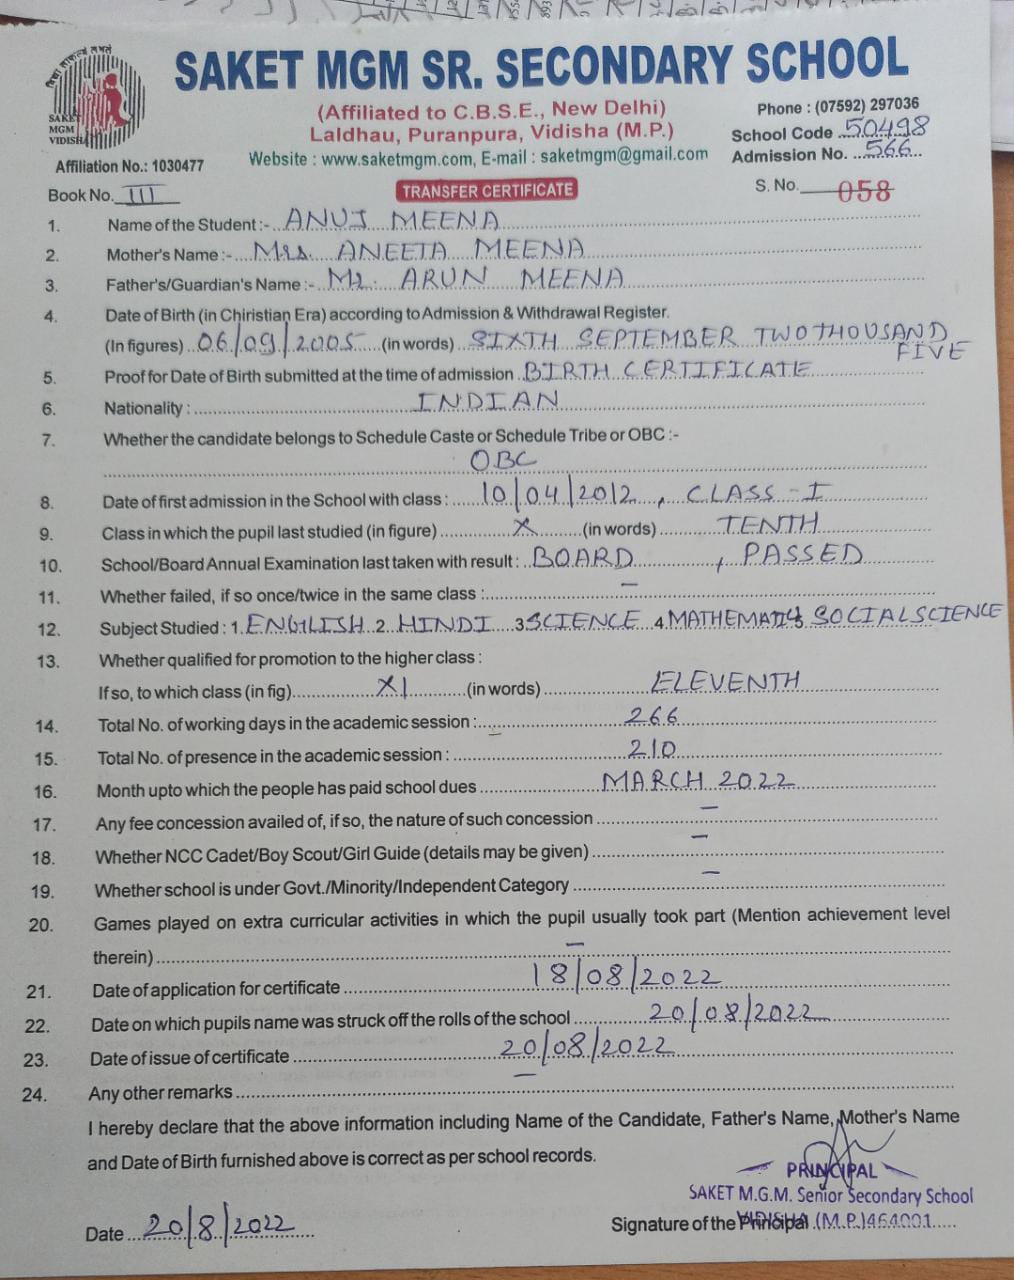 SAKET MGM SR. SECONDARY SCHOOL
SAKET
MGM
VIDISHA
(Affiliated to C.B.S.E., New Delhi)
Laldhau, Puranpura, Vidisha (M.P.)
Website : www.saketmgm.com, E-mail : saketmgm@gmail.com
Phone : (07592) 297036
School Code 50498
Admission No. 566
Affiliation No.: 1030477
Book No. III
TRANSFER CERTIFICATE
S. No. 058
1. Name of the Student :- ANUJ MEENA
2. Mother's Name :- Mrs. ANEETA MEENA
3. Father's/Guardian's Name :- Mr. ARUN MEENA
4. Date of Birth (in Chiristian Era) according to Admission & Withdrawal Register.
(In figures) 06/09/2005 (in words) SIXTH SEPTEMBER TWO THOUSAND
FIVE
5. Proof for Date of Birth submitted at the time of admission BIRTH CERTIFICATE
6. Nationality : INDIAN
7. Whether the candidate belongs to Schedule Caste or Schedule Tribe or OBC :-
OBC
8. Date of first admission in the School with class : 10/04/2012, CLASS - I
9. Class in which the pupil last studied (in figure) X (in words) TENTH
10. School/Board Annual Examination last taken with result : BOARD, PASSED
11. Whether failed, if so once/twice in the same class : —
12. Subject Studied : 1. ENGLISH 2. HINDI 3 SCIENCE 4. MATHEMATICS 5. SOCIAL SCIENCE
13. Whether qualified for promotion to the higher class :
If so, to which class (in fig) XI (in words) ELEVENTH
14. Total No. of working days in the academic session : 266
15. Total No. of presence in the academic session : 210
16. Month upto which the people has paid school dues MARCH 2022
17. Any fee concession availed of, if so, the nature of such concession —
18. Whether NCC Cadet/Boy Scout/Girl Guide (details may be given) —
19. Whether school is under Govt./Minority/Independent Category —
20. Games played on extra curricular activities in which the pupil usually took part (Mention achievement level
therein) —
21. Date of application for certificate 18/08/2022
22. Date on which pupils name was struck off the rolls of the school 20/08/2022
23. Date of issue of certificate 20/08/2022
24. Any other remarks —
I hereby declare that the above information including Name of the Candidate, Father's Name, Mother's Name
and Date of Birth furnished above is correct as per school records.
PRINCIPAL
SAKET M.G.M. Senior Secondary School
VIDISHA (M.P.) 464001
Date 20/8/2022
Signature of the Principal